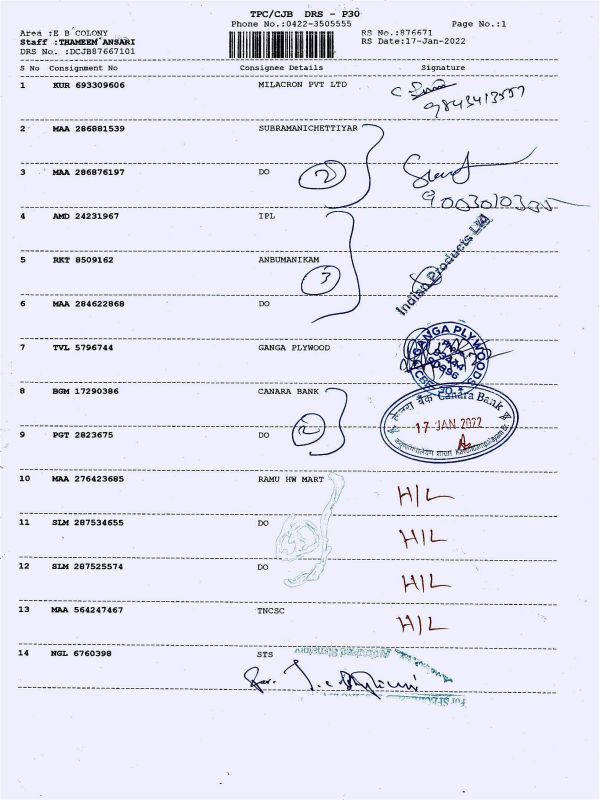 TPC/CJB DRS - P30
Phone No.:0422-3505555 Page No.:1
Area :E B COLONY RS No.:876671
Staff :THAMEEM ANSARI RS Date:17-Jan-2022
DRS No. :DCJB87667101
S No Consignment No Consignee Details Signature
1 KUR 693309606 MILACRON PVT LTD
2 MAA 286881539 SUBRAMANICHETTIYAR
3 MAA 286876197 DO 2
4 AMD 24231967 IPL
Indian Products Ltd
5 RKT 8509162 ANBUMANIKAM 3
6 MAA 284622868 DO
7 TVL 5796744 GANGA PLYWOOD
GANGA PLYWOODS
8 BGM 17290386 CANARA BANK
केनरा बैंक Canara Bank
17 JAN 2022
9 PGT 2823675 DO 2
10 MAA 276423685 RAMU HW MART H/L
11 SLM 287534655 DO H/L
12 SLM 287525574 DO H/L
13 MAA 564247467 TNCSC H/L
14 NGL 6760398 STS
Authorised Signatory